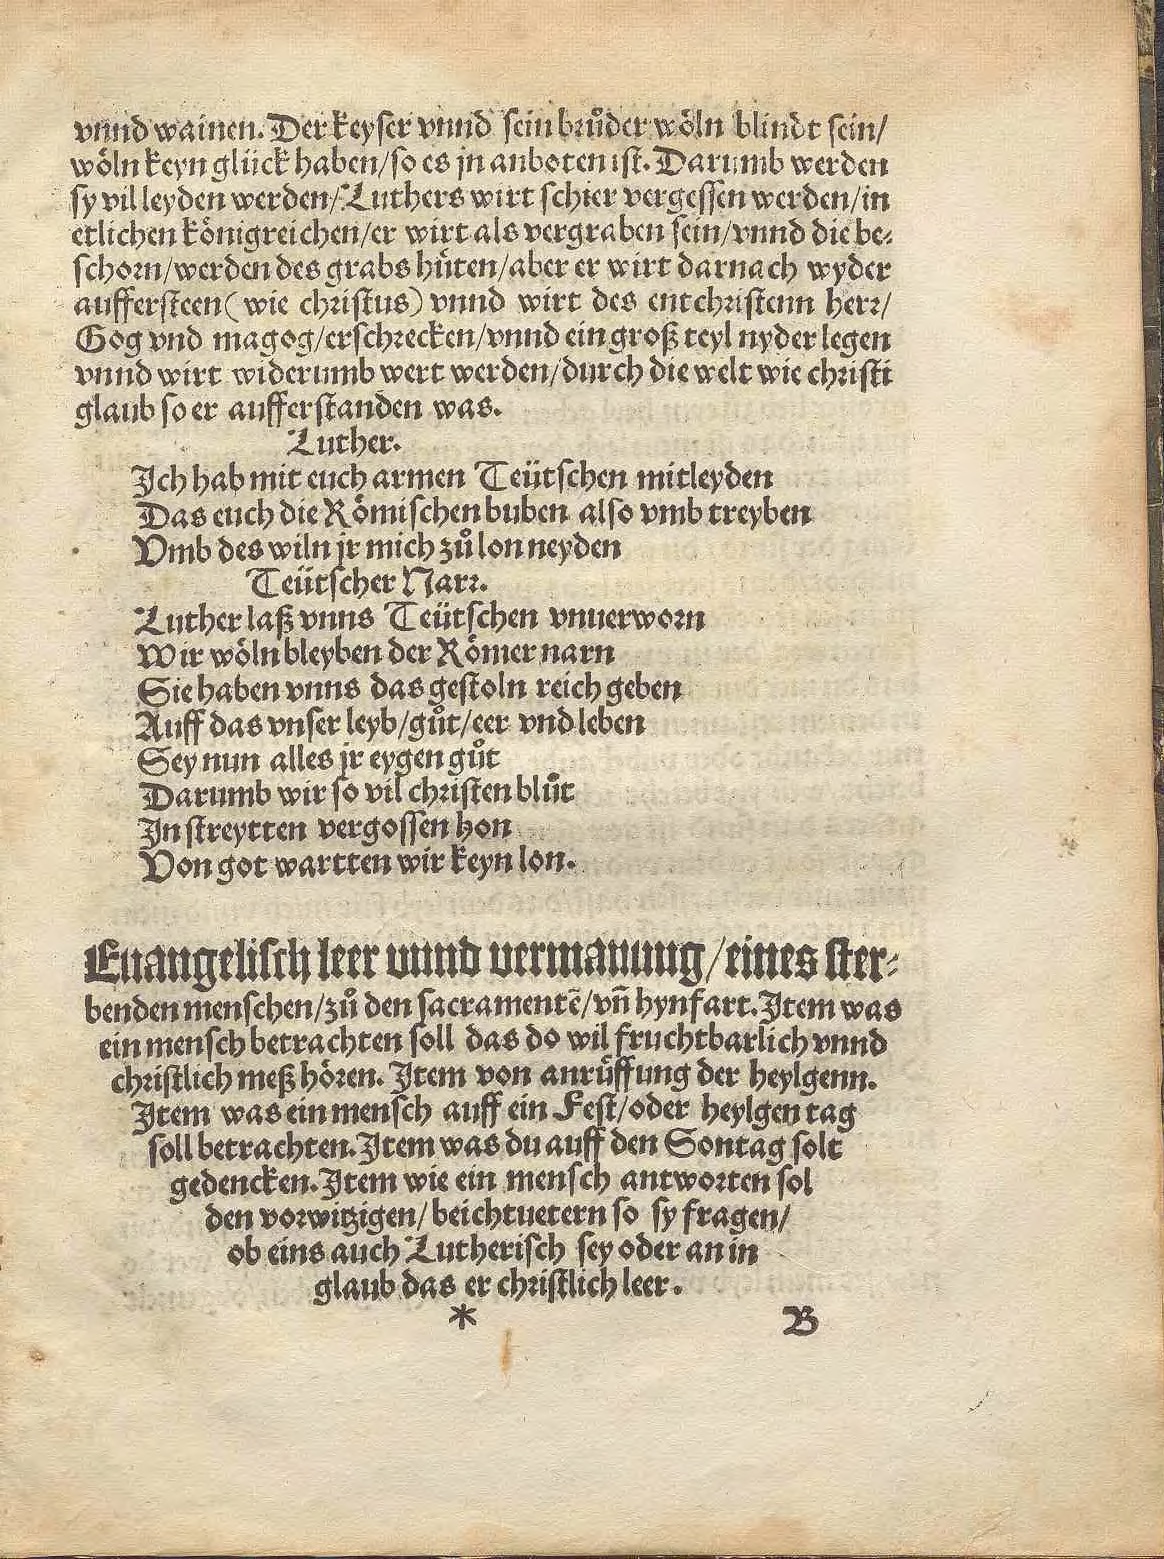 vnnd wainen. Der keyser vnnd sein bruͦder woͤln blindt sein/
woͤln keyn glück haben/so es jn anboten ist. Darumb werden
sy vil leyden werden/Luthers wirt schier vergessen werden/in
etlichen koͤnigreichen/er wirt als vergraben sein/vnnd die be⸗
schorn/werden des grabs huͤten/aber er wirt darnach wyder
auffersteen (wie christus) vnnd wirt des entchristenn herr/
Gog vnd magog/erschrecken/vnnd ein groß teyl nyder legen
vnnd wirt widerumb wert werden/durch die welt wie christi
glaub so er aufferstanden was.
Luther.
Ich hab mit euch armen Teütschen mitleyden
Das euch die Roͤmischen buben also vmb treyben
Vmb des wiln jr mich zuͦ lon neyden
Teütscher Narr.
Luther laß vnns Teütschen vnuerworn
Wir woͤln bleyben der Roͤmer narn
Sie haben vnns das gestoln reich geben
Auff das vnser leyb/guͦt/eer vnd leben
Sey nun alles jr eygen guͦt
Darumb wir so vil christen bluͤt
In streytten vergossen hon
Von got wartten wir keyn lon.
Euangelisch leer vnnd vermanung/eines ster⸗
benden menschen/zuͦ den sacramentē/vn̄ hynfart. Item was
ein mensch betrachten soll das do wil fruchtbarlich vnnd
christlich meß hoͤren. Item von anruͤffung der heylgenn.
Item was ein mensch auff ein Fest/oder heylgen tag
soll betrachten. Item was du auff den Sontag solt
gedencken. Item wie ein mensch antworten sol
den vorwitzigen/beichtuetern so sy fragen/
ob eins auch Lutherisch sey oder an in
glaub das er christlich leer.
* B